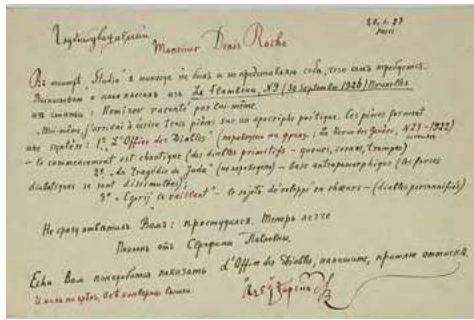 20.1.27
Paris
Глубокоуважаемый
Monsieur Denis Roche
Въ театрѣ "Studio" я никогда не былъ и не представляю себѣ, что тамъ требуется.
о моихъ пьесахъ изъ Le Flambeau, № 9 (30 September 1926) Bruxelles
изъ статьи: Remizov raconté par lui-même.
"Moi-même, j'arrivai à écrire trois pièces sur un apocriphe poétique. Ces pièces forment
une synthèse: 1º, L'Office des Diables" (La Revue de Genève, № 27 - 1922)
- le commencement est chaotique (des diables primitifs - queues, cornes, trompes)
2º "La Tragédie de Juda" - base antropomorphique (les forces
diaboliques se sont dissimulées);
3º "Egorij le vaillant" - le sujet développé en chœurs - (diables personnifiés)
Не сразу отвѣтилъ Вамъ: простудился. Теперь легче
Поклонъ отъ Серафимы Павловны.
Если Вамъ понадобится показать L'Office des Diables, напишите, пришлю оттискъ.